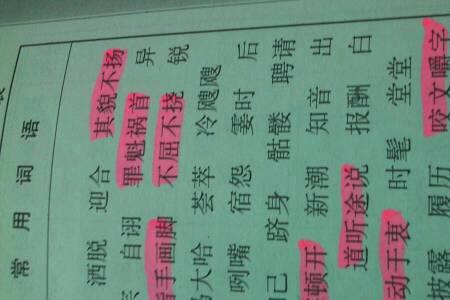 常用词语
洒脱 迎合 其貌不扬
自诩 罪魁祸首 异
指手画脚 不屈不挠 锐
马大哈 荟萃 冷飕飕
咧嘴 宿怨 霎时 后
己 跻身 骷髅 聘请
顿开 新潮 知音 出
道听途说 报酬 白
动于衷 时髦 堂堂
披露 履历 咬文嚼字